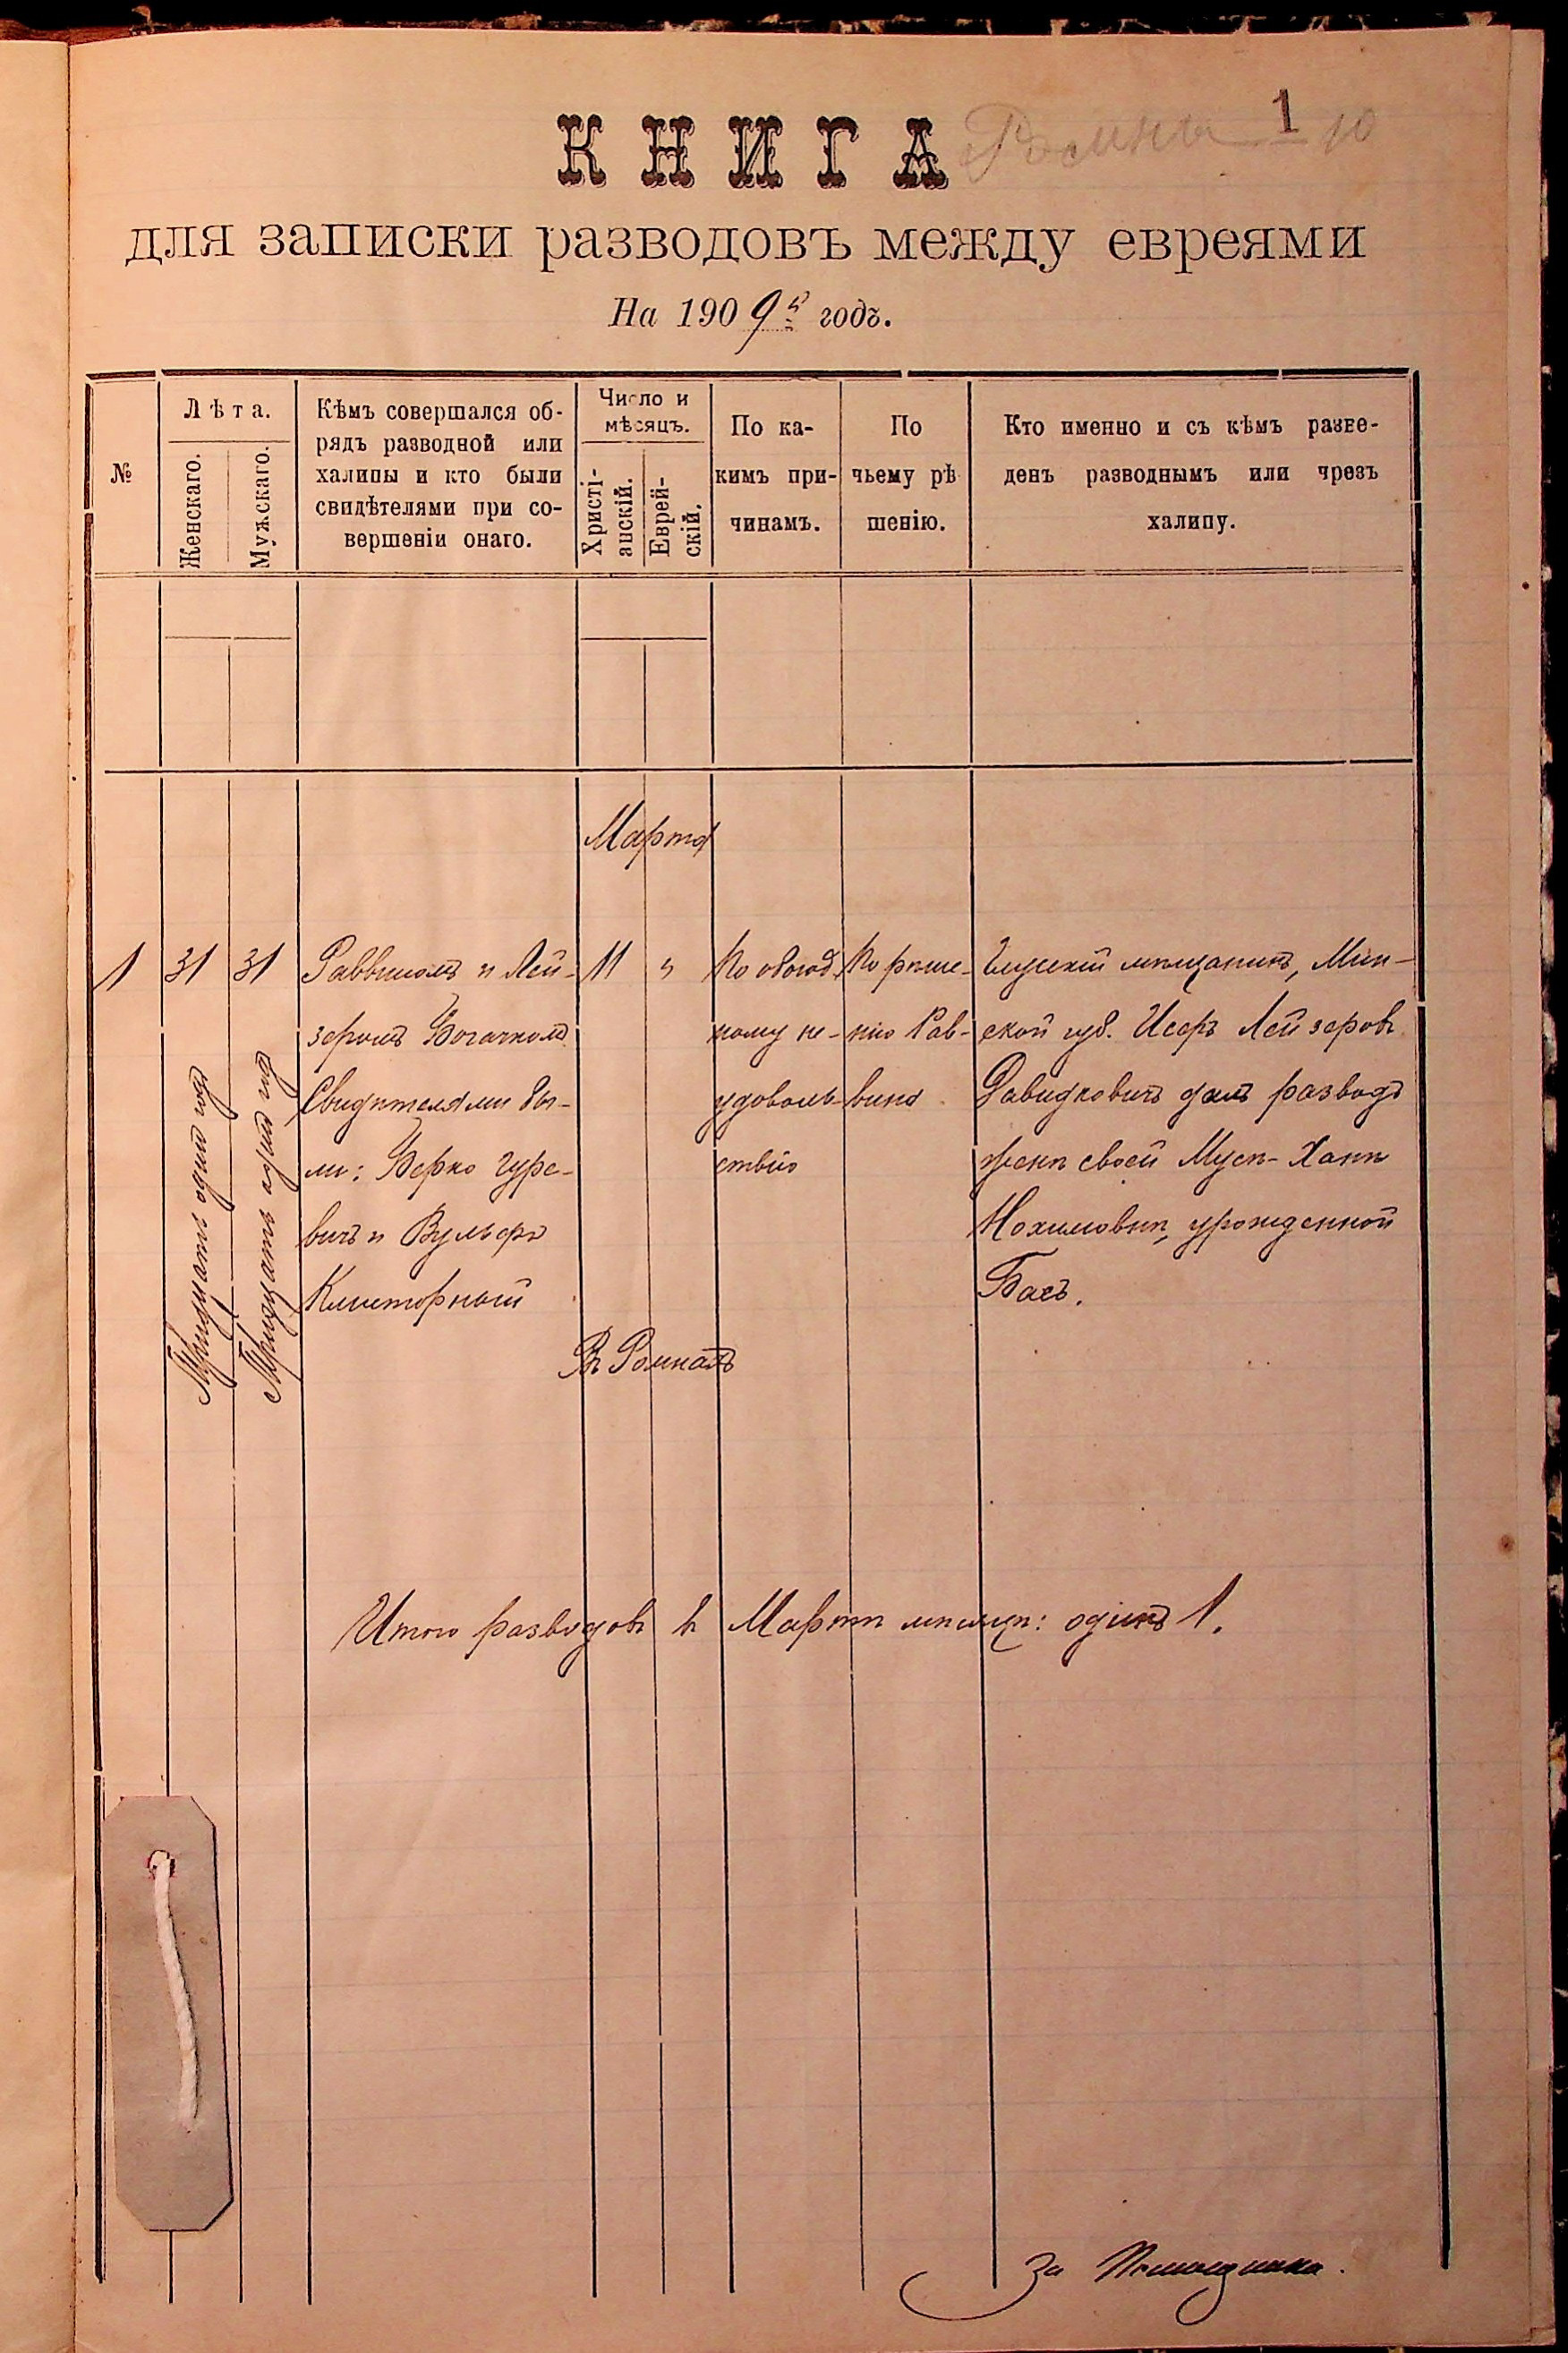 КНИГА
Ромны 1 10
для записки разводовъ между евреями
На 1909й годъ.
№
Лѣта.
Женскаго.
Мужскаго.
Кѣмъ совершался об-
рядъ разводной или
халипы и кто были
свидѣтелями при со-
вершеніи онаго.
Число и
мѣсяцъ.
Христі-
анскій.
Еврей-
скій.
По ка-
кимъ при-
чинамъ.
По
чьему рѣ
шенію.
Кто именно и съ кѣмъ разве-
денъ разводнымъ или чрезъ
халипу.
Марта
1
31
Тридцать одинъ годъ
31
Тридцать одинъ годъ
Раввиномъ и Лей-
зеромъ Богачкомъ
Свидѣтелями бы-
ли: Берко Гуре-
вичъ и Вульфъ
Клиторный
11
"
Въ Ромнахъ
По обоюд
ному не-
удоволь-
ствію
По рѣше-
нію Рав-
вина
Глускій мѣщанинъ, Мин-
ской губ. Исеръ Лейзеровъ
Давидковичъ далъ разводъ
женѣ своей Мусѣ-Ханѣ
Нохимовнѣ, урожденной
Басъ.
Итого разводовъ въ Мартѣ мѣсяцѣ: одинъ 1.
За